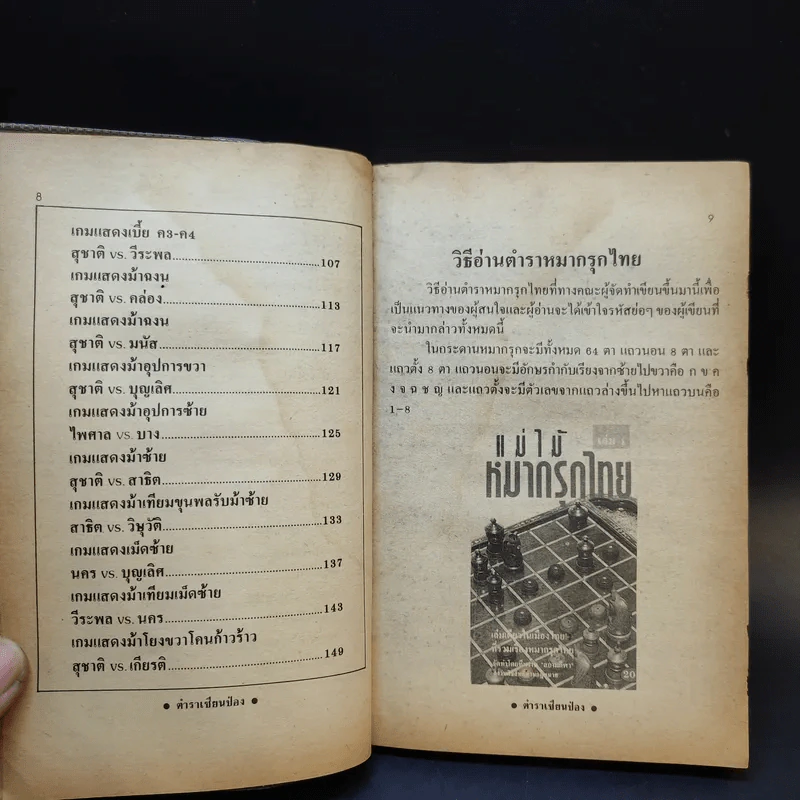 8
เกมแสดงเบี้ย ค3-ค4
สุชาติ vs. วีระพล..........107
เกมแสดงม้าฉงน
สุชาติ vs. คล่อง..........113
เกมแสดงม้าฉงน
สุชาติ vs. มนัส..........117
เกมแสดงม้าอุปการขวา
สุชาติ vs. บุญเลิศ..........121
เกมแสดงม้าอุปการซ้าย
ไพศาล vs. บาง..........125
เกมแสดงม้าซ้าย
สุชาติ vs. สาธิต..........129
เกมแสดงม้าเทียมขุนพลรับม้าซ้าย
สาธิต vs. วิษุวัติ..........133
เกมแสดงเม็ดซ้าย
นคร vs. บุญเลิศ..........137
เกมแสดงม้าเทียมเม็ดซ้าย
วีระพล vs. นคร..........143
เกมแสดงม้าโยงขวาโคนก้าวร้าว
สุชาติ vs. เกียรติ..........149
● ตำราเซียนป๋อง ●
9
วิธีอ่านตำราหมากรุกไทย
วิธีอ่านตำราหมากรุกไทยที่ทางคณะผู้จัดทำเขียนขึ้นมานี้เพื่อ
เป็นแนวทางของผู้สนใจและผู้อ่านจะได้เข้าใจรหัสย่อๆ ของผู้เขียนที่
จะนำมากล่าวทั้งหมดนี้
ในกระดานหมากรุกจะมีทั้งหมด 64 ตา แถวนอน 8 ตา และ
แถวตั้ง 8 ตา แถวนอนจะมีอักษรกำกับเรียงจากซ้ายไปขวาคือ ก ข ค
ง จ ฉ ช ญ และแถวตั้งจะมีตัวเลขจากแถวล่างขึ้นไปหาแถวบนคือ
1-8
แม่ไม้
หมากรุกไทย
20
● ตำราเซียนป๋อง ●